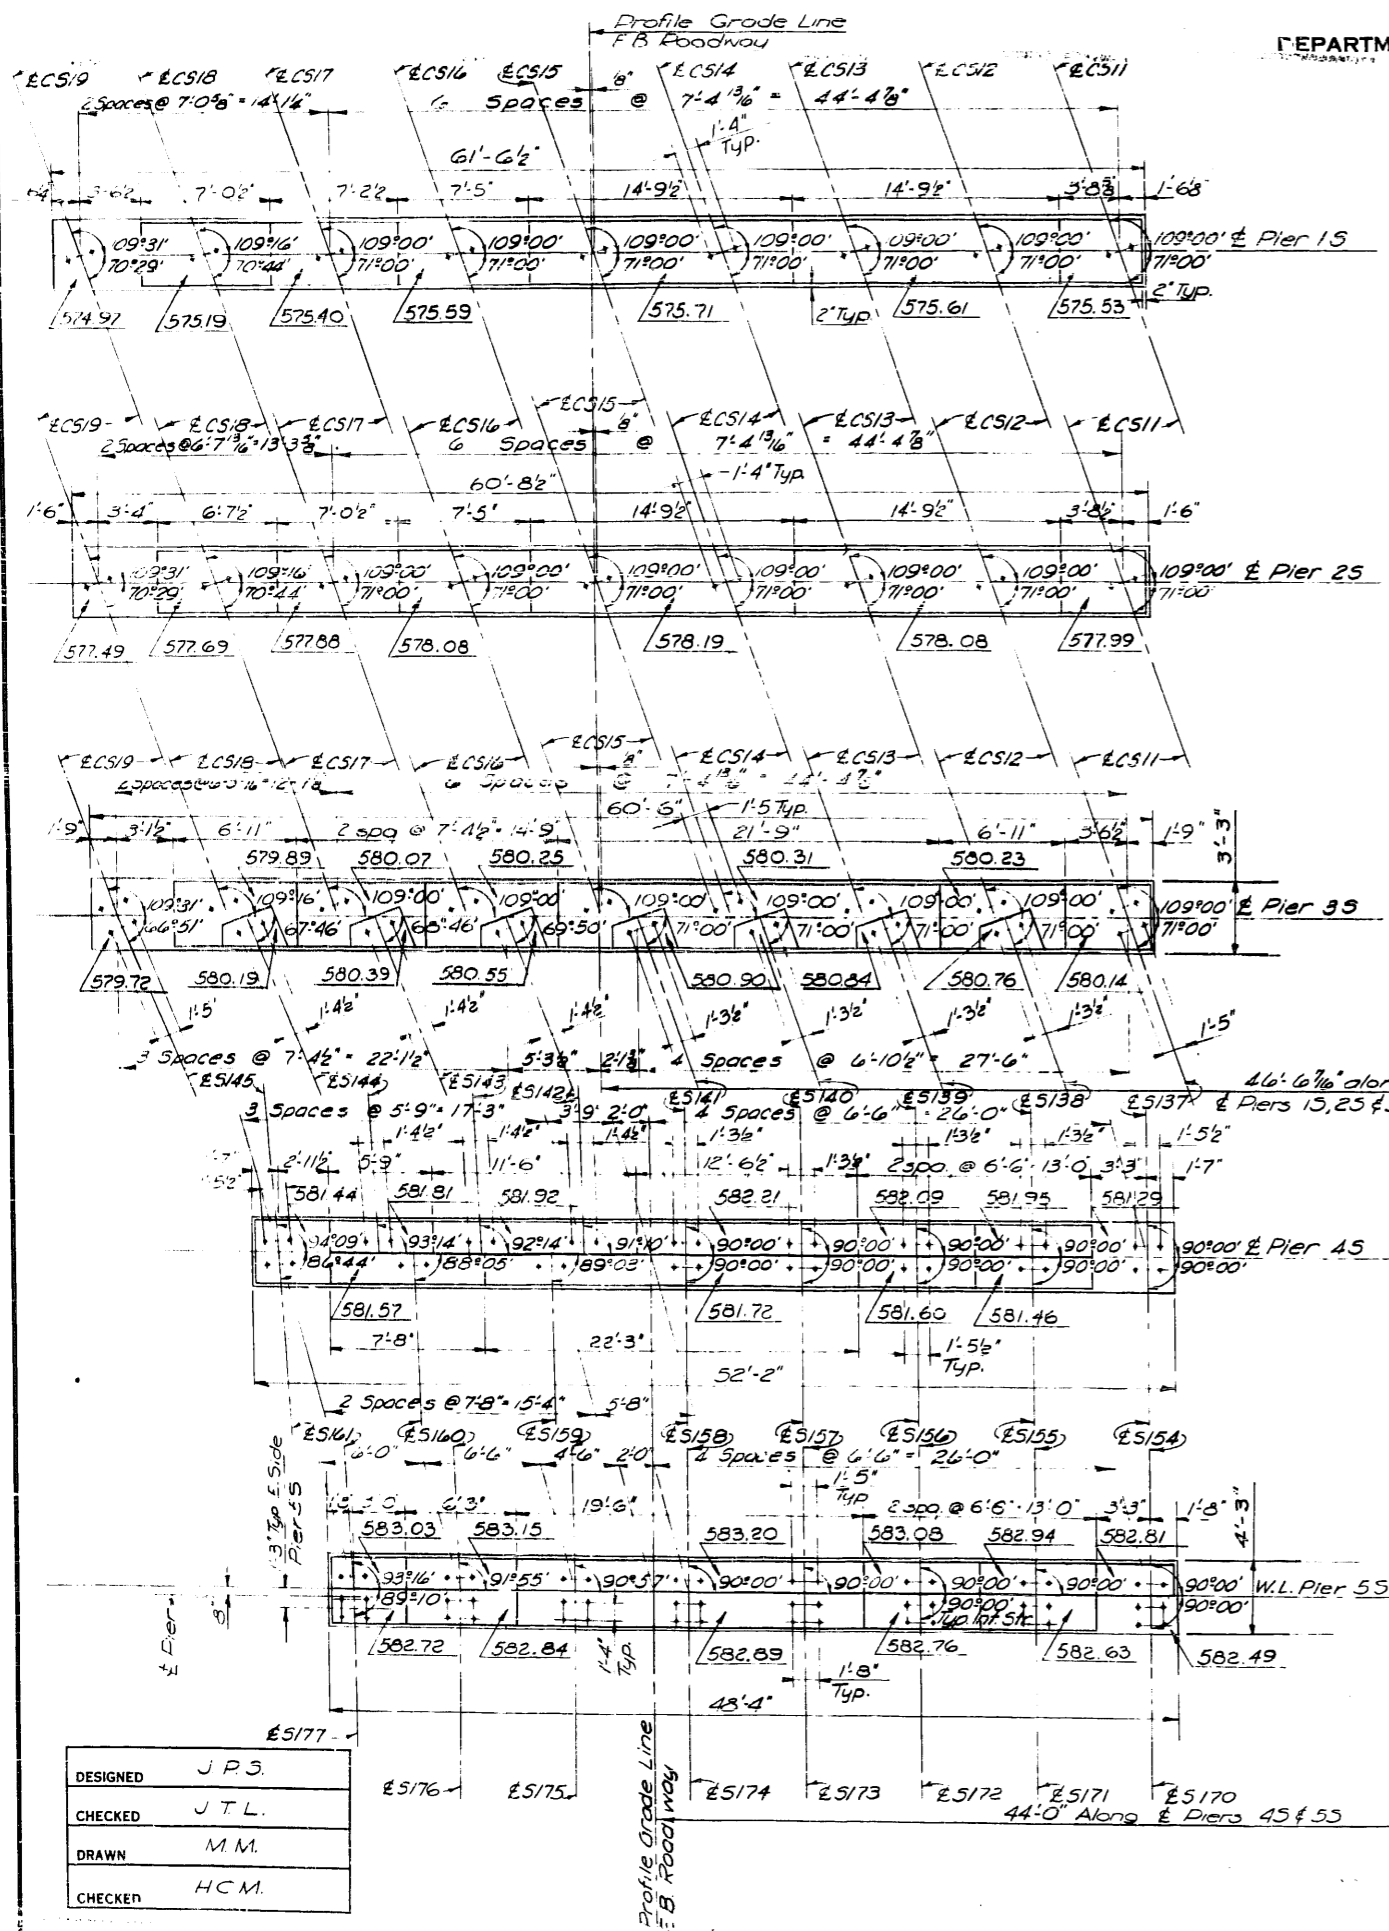 Profile Grade Line
E B Roadway
DEPARTM
℄CS19 ℄CS18 ℄CS17 ℄CS16 ℄CS15 ℄CS14 ℄CS13 ℄CS12 ℄CS11
2 Spaces @ 7'-0⅝" = 14'-1¼" 6 Spaces @ 7'-4 13/16" = 44'-4⅞"
⅛"
1'-4" Typ.
61'-6½"
3'-6½ 7'-0½" 7'-2½ 7'-5" 14'-9½" 14'-9½" 3'-8⅜ 1'-6⅛"
109°31' 109°16' 109°00' 109°00' 109°00' 109°00' 109°00' 109°00' 109°00' ℄ Pier 1S
70°29' 70°44' 71°00' 71°00' 71°00' 71°00' 71°00' 71°00' 71°00'
574.97 575.19 575.40 575.59 575.71 2" Typ. 575.61 575.53 2" Typ.
℄CS19 ℄CS18 ℄CS17 ℄CS16 ℄CS15 ℄CS14 ℄CS13 ℄CS12 ℄CS11
2 Spaces @ 6'-7 13/16" = 13'-3⅝" 6 Spaces @ 7'-4 13/16" = 44'-4⅞"
⅛"
60'-8½" 1'-4" Typ.
1'-6" 3'-4" 6'-7½" 7'-0½" 7'-5" 14'-9½" 14'-9½" 3'-8½" 1'-6"
109°31' 109°16' 109°00' 109°00' 109°00' 109°00' 109°00' 109°00' 109°00' ℄ Pier 2S
70°29' 70°44' 71°00' 71°00' 71°00' 71°00' 71°00' 71°00' 71°00'
577.49 577.69 577.88 578.08 578.19 578.08 577.99
℄CS19 ℄CS18 ℄CS17 ℄CS16 ℄CS15 ℄CS14 ℄CS13 ℄CS12 ℄CS11
6 Spaces @ 7'-4 13/16" = 44'-4⅞"
⅛"
60'-6" 1'-5 Typ.
1'-9" 3'-1½" 6'-11" 2 spa @ 7'-4½" = 14'-9" 21'-9" 6'-11" 3'-6½" 1'-9" 3'-3"
579.89 580.07 580.25 580.31 580.23
109°31' 109°16' 109°00' 109°00' 109°00' 109°00' 109°00' 109°00' 109°00' ℄ Pier 3S
66°51' 67°46' 68°46' 69°50' 71°00' 71°00' 71°00' 71°00' 71°00'
579.72 580.19 580.39 580.55 580.90 580.84 580.76 580.14
1'-5' 1'-4½" 1'-4½" 1'-4½" 1'-3½" 1'-3½" 1'-3½" 1'-3½" 1'-5"
3 Spaces @ 7'-4½" = 22'-1½" 5'-3½" 4 Spaces @ 6'-10½" = 27'-6"
℄S145 ℄S144 ℄S143 ℄S142 ℄S141 ℄S140 ℄S139 ℄S138 ℄S137
46'-6 7/16" alon
℄ Piers 1S, 2S &
3 Spaces @ 5'-9" = 17'-3" 3'-9" 2'-0" 4 Spaces @ 6'-6" = 26'-0"
1'-4½" 1'-4½" 1'-4½" 1'-3½" 1'-3½" 1'-3½" 1'-5½"
2'-11½" 5'-9" 11'-6" 12'-6½" 1'-3½" 2 spa. @ 6'-6" = 13'-0" 3'-3" 1'-7"
581.44 581.81 581.92 582.21 582.09 581.95 581.29
94°09' 93°14' 92°14' 91°10' 90°00' 90°00' 90°00' 90°00' 90°00' ℄ Pier 4S
86°44' 88°05' 89°03' 90°00' 90°00' 90°00' 90°00' 90°00'
581.57 581.72 581.60 581.46
7'-8" 22'-3" 1'-5½" Typ.
52'-2"
2 Spaces @ 7'-8" = 15'-4" 5'-8"
℄S161 ℄S160 ℄S159 ℄S158 ℄S157 ℄S156 ℄S155 ℄S154
6'-0" 6'-6" 4'-6" 2'-0" 4 Spaces @ 6'-6" = 26'-0"
1'-5" Typ.
1'-3" Typ E. Side
Pier 5S
6'-3" 19'-6" 2 spa. @ 6'-6" = 13'-0" 3'-3" 1'-8" 4'-3"
583.03 583.15 583.20 583.08 582.94 582.81
93°16' 91°55' 90°57' 90°00' 90°00' 90°00' 90°00' 90°00' W.L. Pier 5S
89°10' 90°00' 90°00'
Typ. Int. Str.
℄ Pier
8"
582.72 582.84 1'-4" Typ. 582.89 582.76 582.63 582.49
1'-8" Typ.
48'-4"
℄S177 ℄S176 ℄S175 ℄S174 ℄S173 ℄S172 ℄S171 ℄S170
44'-0" Along ℄ Piers 4S & 5S
Profile Grade Line
E B. Roadway
DESIGNED J P. S.
CHECKED J T L.
DRAWN M. M.
CHECKED H C M.